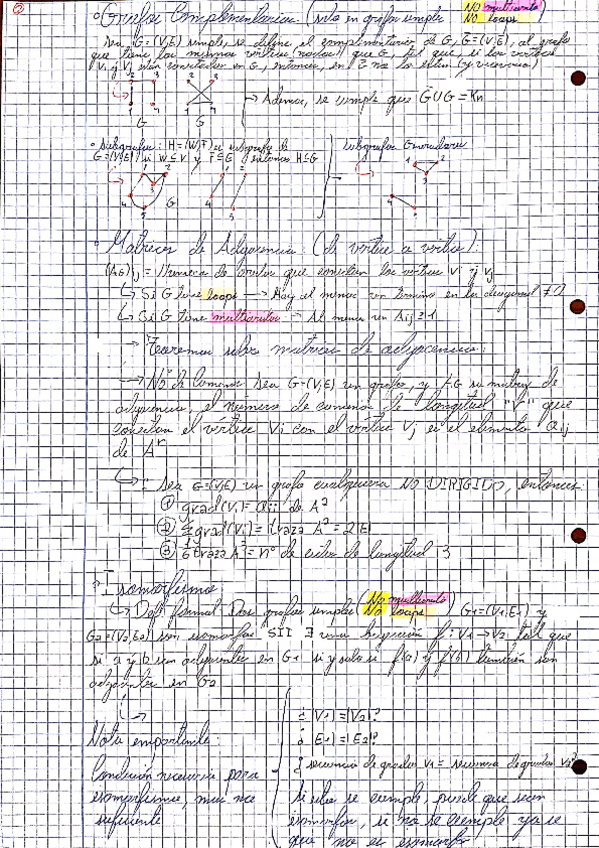 ② ◦ Grafos Complementarios. (solo en grafos simples NO multiarista
NO loops )
Sea G=(V,E) simple, se define el complementario de G, G̅=(V,E̅), al grafo
que tiene los mismos vértices (nodos) que G, tal que, si los vértices
Vi y Vj están conectados en G, entonces, en G̅ no lo están (y viceversa)
1 2 3 4
G G̅
Ademas, se cumple que G̅UG=Kn
◦ Subgrafos: H=(W,F) es subgrafo de
G=(V,E) si W⊆V y F⊆E y entonces H⊆G
Subgrafos Generadores
◦ Matrices de Adyacencia: (de vertice a vertice):
(AG)ij = Numero de aristas que conectan los vertices Vi y Vj
↳ Si G tiene loops → Hay al menos un termino en la diagonal ≠0
↳ Si G tiene multiaristas → Al menos un Aij>1
→ Teoremas sobre matrices de adyacencia:
→ Nº de Caminos Sea G=(V,E) un grafo, y AG su matriz de
adyacencia, el número de caminos de longitud "r" que
conectan el vértice Vi con el vértice Vj es el elemento aij
de A^r
↳ Sea G=(V,E) un grafo cualquiera NO DIRIGIDO, entonces:
① grad(Vi)= aii de A²
② Σgrad(Vi)= traza A² = 2|E|
③ 1/6 traza A³ = nº de ciclos de longitud 3
◦ Isomorfismo
↳ Def. formal Dos grafos simples (No multiarista
No loops ) G1=(V1,E1) y
G2=(V2,E2) son isomorfos SII ∃ una biyección f: V1→V2 tal que
si a y b son adyacentes en G1 si y solo si f(a) y f(b) también son
adyacentes en G2
Nota importante:
Condición necesaria para
isomorfismo, mas no
suficiente
¿|V1|=|V2|?
¿|E1|=|E2|?
¿secuencia de grados V1 = secuencia de grados V2?
Si se cumple, puede que sean
isomorfos, si no se cumple ya se
que no es isomorfo